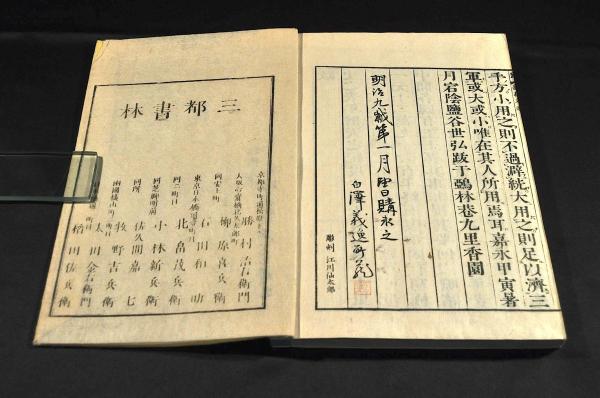 乎方小用之則不過澼絖大用之則足以濟三
軍或大或小唯在其人所用焉耳嘉永甲寅暑
月宕陰鹽谷世弘跋于鵶林巷九里香園
明治九歳第一月 購求之
白澤義逸
彫刻 江川仙太郎
三都書林
京都寺町通松原下ル 勝村治右衛門
大阪心斎橋 柳原喜兵衛
東京日本橋通 石田和助
同二町目 北畠茂兵衛
同芝神明前 小林新兵衛
同所 佐久間嘉七
両國横山町 牧野吉兵衛
太田金右衛門
椀田佐兵衛